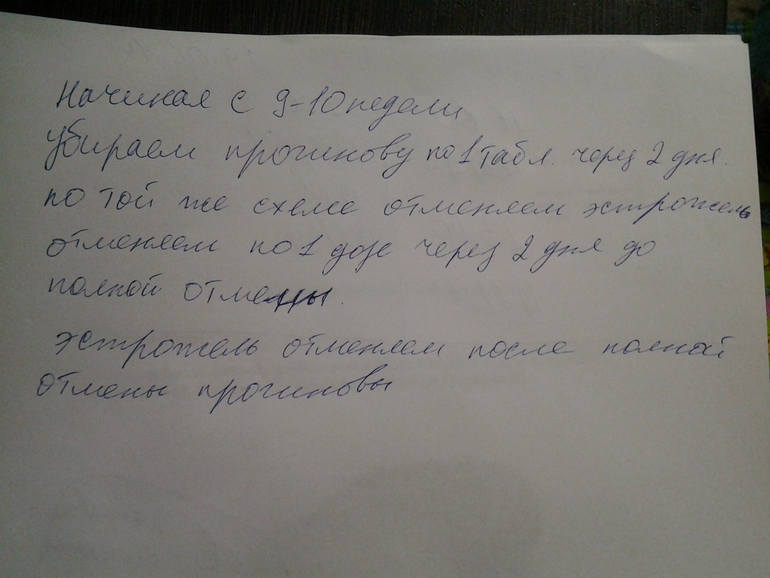 Начиная с 9-10 недели
убираем прогинову по 1 табл. через 2 дня.
по той же схеме отменяем эстрожель
отменяем по 1 дозе через 2 дня до
полной отмены.
эстрожель отменяем после полной
отмены прогиновы